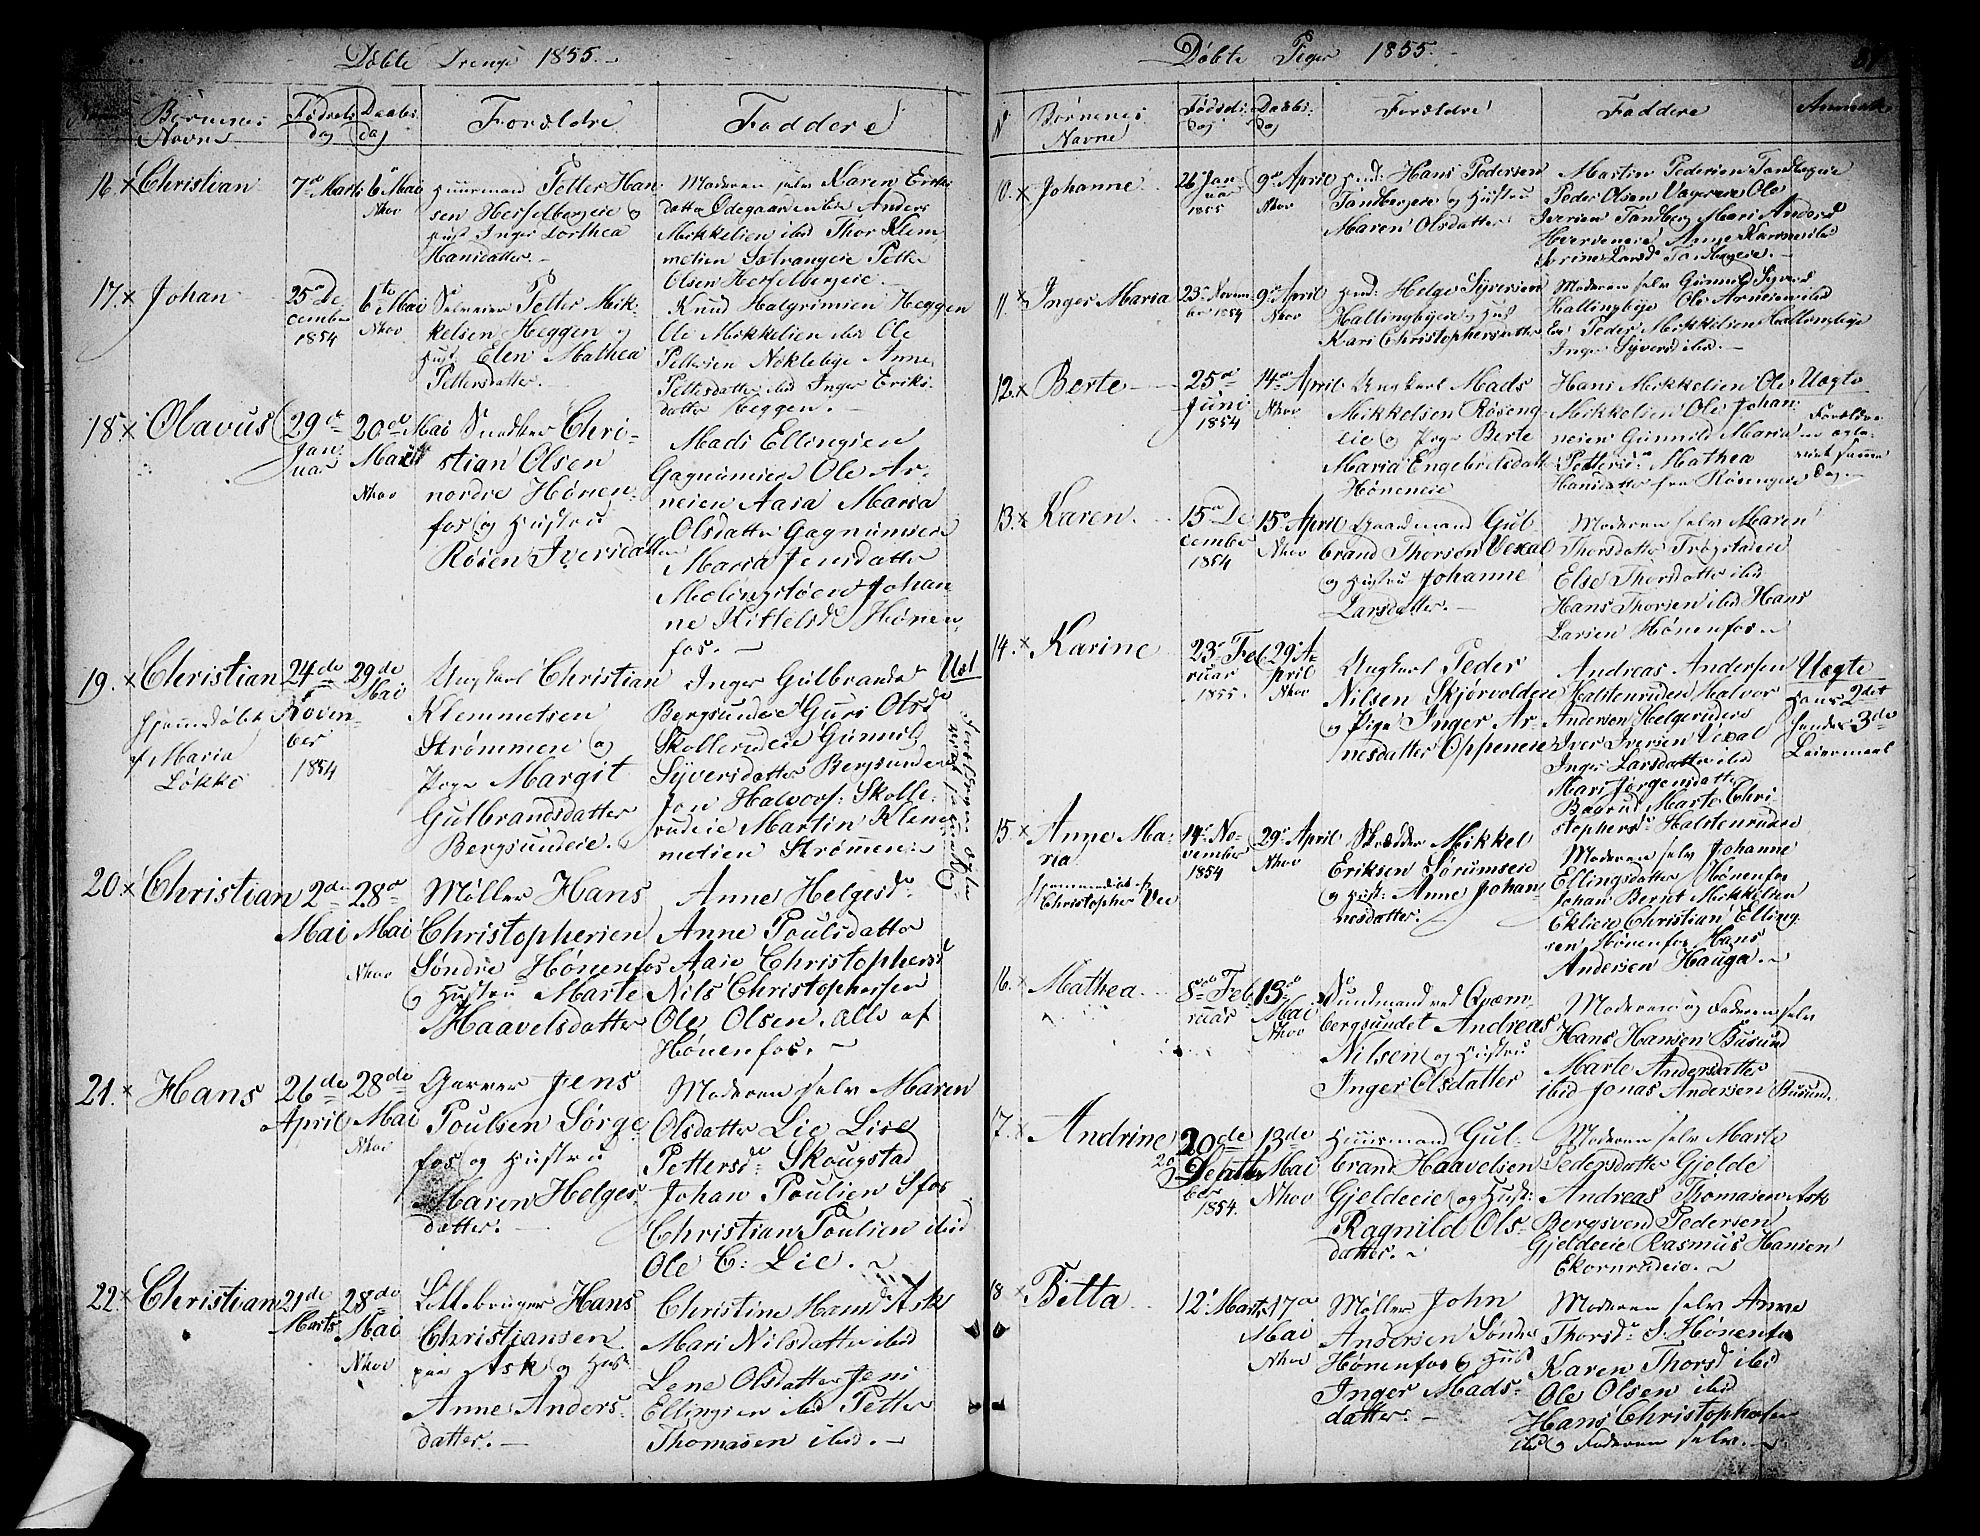 Döbte Drenge 1855.
Börnenes
Navne
Födsels
dag
Daabs
dag
Forældre
Faddere
16. x Christian
7de Marts
6te Mai
Nkov
Huusmand Petter Han
sen Hesselbergeie og
Hust Inger Dorthea
Hansdatter. -
Moderen selv Karen Eriks
datter Ødegaarden Anders
Mikkelsen ibid Thor Klem
metsen Petter
Olsen Hesselbergeie
17. x Johan
25de De
cember
1854
6te Mai
Nkov
Selveier Petter Mik-
kelsen Heggen og
Hust Elen Mathea
Pettersdatter. -
Knud Halgrimsen Heggen
Ole Mikkelsen ibid Ole
Pettersen Noklebye Anne
Pettersdatter ibid Inger Eriks
datter Heggen. -
18 x Olavus
29de
Jan
uar
20de Mai
Marts
Nkov
Snedker Chri-
stian Olsen
nordre Hönen-
fos og Hustru
Rösen Iversdatter
Mads Ellingsen
Gagnumeie Ole Ar-
nesen Aasa Maria
Olsdatter Gagnumeie
Maria Jensdatter
Johan
ne Kittelsd Hönen-
fos. -
19. x Christian
Hjemmedöbt
af Maria
Lökke
24de
Novem-
ber
1854
29de
Mai
Ungkarl Christian
Klemmetsen
Strömmen og
Pige Margit
Gulbrandsdatter
Bergsundeie.
Inger Gulbrands
Bergsundeie Guri Olsd
Skollerudeie Gunnil
Syversdatter Bergsundeie
Jon Halvors: Skolle-
rudeie Martin Klem
metsen Strömmen:
20. x Christian
2de
Mai
28de
Mai
Nkov
Möller Hans
Christophersen
Söndre Hönenfos
og Hustru Marte
Haavelsdatter
Anne Helgesd
Anne Poulsdatter
Aase Christophersd
Nils Christophersen
Ole Olsen. alle af
Hönenfos. -
21. x Hans
26de
April
28de
Mai
Nkov
Garver Jens
Poulsen Sörge-
fos og Hustru
Maren Helges
datter. -
Moderen selv Maren
Olsdatter Lie Lise
Pettersd: Skougstad
Johan Poulsen Sfos
Christian Poulsen ibid
Ole C: Lie. -
22. x Christian
21de
Marts
28de
Mai
Nkov
Hans
Christiansen
paa Ask og Hust
Anne Anders-
datter. -
Christine Hansd Ask
Mari Nilsdatter ibid
Lene Olsdatter Jens
Ellingsen ibid Petter
Thomasen ibid. -
Döbte Piger 1855.
N
Börnenes
Navne
Födsels
Dag
Daabs
Dag
Forældre
Faddere
10. x Johanne
26 Jan
uar
1855
9de April
Nkov
Hmd: Hans Pedersen
Tandbergeie og Hustru
Maren Olsdatter
Martin Pedersen Tandbergeie
Peder Olsen Ole
Iversen Tandberg Mari Andersd
Anne Karine ibid
Larsd Tandbergeie. -
11. x Inger Maria
23de Novem
ber 1854
9de April
Nkov
Hmd: Helge Syversen
Hallingbyeie og Hust
Kari Christophersdatter
Moderen selv Gunnild Syversd
Hallingbye Ole Arnesen ibid
Peder Mikkelsen Hallingbye
Inger Syversd ibid. -
12. x Berte
25de
Juni
1854
14de April
Nkov
Ungkarl Mads
Mikkelsen Röseng
eie og Pige Berte
Maria Engebretsdatt
Höneneie
Hans Mikkelsen Ole
Mikkelsen Ole Johan-
nesen Gunnild Maria
Pettersd Mathea
Hansdatter fra Rösengeie
Uægte
Forældre
ne ægte-
viet samme
Dag. -
13. x Karen
15de De
cember
1854
15de April
Nkov
Gaardmand Gul
brand Thorsen Vexal
og Hustru Johanne
Larsdatter. -
Moderen selv Maren
Thorsdatter Trögstadeie
Else Thorsdatter ibid
Hans Thorsen ibid Hans
Larsen Hönenfos. -
14. x Karine
23de Feb
ruar
1855.
29 A-
pril
Nkov
Ungkarl Peder
Nilsen Skjörvoldeie
og Pige Inger Ar-
nesdatter Oppeneie
Andreas Andersen
Halstenruden Halvor
Andersen Helgerudeie
Iver Iversen Vexal
Inger Larsdatter ibid
Mari Jörgensdatter
Marte Chri
stophersd: Halstenruden
Uægte
Hans 2det
hendes 3de
Leiermaal
15. x Anne Ma-
ria
Hjemmedöbt af
Christopher Vee
14de No-
vember
1854
29de April
Nkov
Skrædder Mikkel
Eriksen Sörumseie
og Hust: Anne Johan-
nesdatter.
Moderen selv Johanne
Ellingsdatter Hönenfos
Johan Bernt Mikkelsen
Eklieie Christian Elling-
sen Hönenfos Hans
Andersen Hauga. -
16. x Mathea
5de Feb
ruar
13de
Mai
Nkov
Sundmand ved Qvæm-
bergsundet Andreas
Nilsen og Hustru
Inger Olsdatter
Moderen og Faderen selv
Hans Hansen Busund
Marte Andersdatter
ibid Jonas Andersen Busund.
17. x Andrine
20de
Septem
ber
1854.
13de
Mai
Nkov
Huusmand Gul-
brand Haavelsen
Gjeldeeie og Hust:
Ragnild Ols-
datter. -
Moderen selv Marte
Pedersdatter Gjelde
Andreas Thomasen Ask
Bergsvend Pedersen
Gjeldeeie Rasmus Hansen
Ekornrudeie. -
18 x Betta
12te Marts
17de
Mai
Nkov
Möller John
Andersen Söndre
Hönenfos og Hust
Inger Mads-
datter. -
Moderen selv Anne
Thorsd: S. Hönenfos
Karen Thorsd ibid
Ole Olsen ibid
Hans Christophersen
ibid og Faderen selv. -